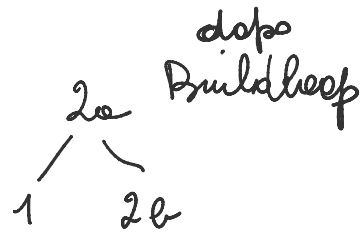 dopo
Buildheap
2a
1 2b